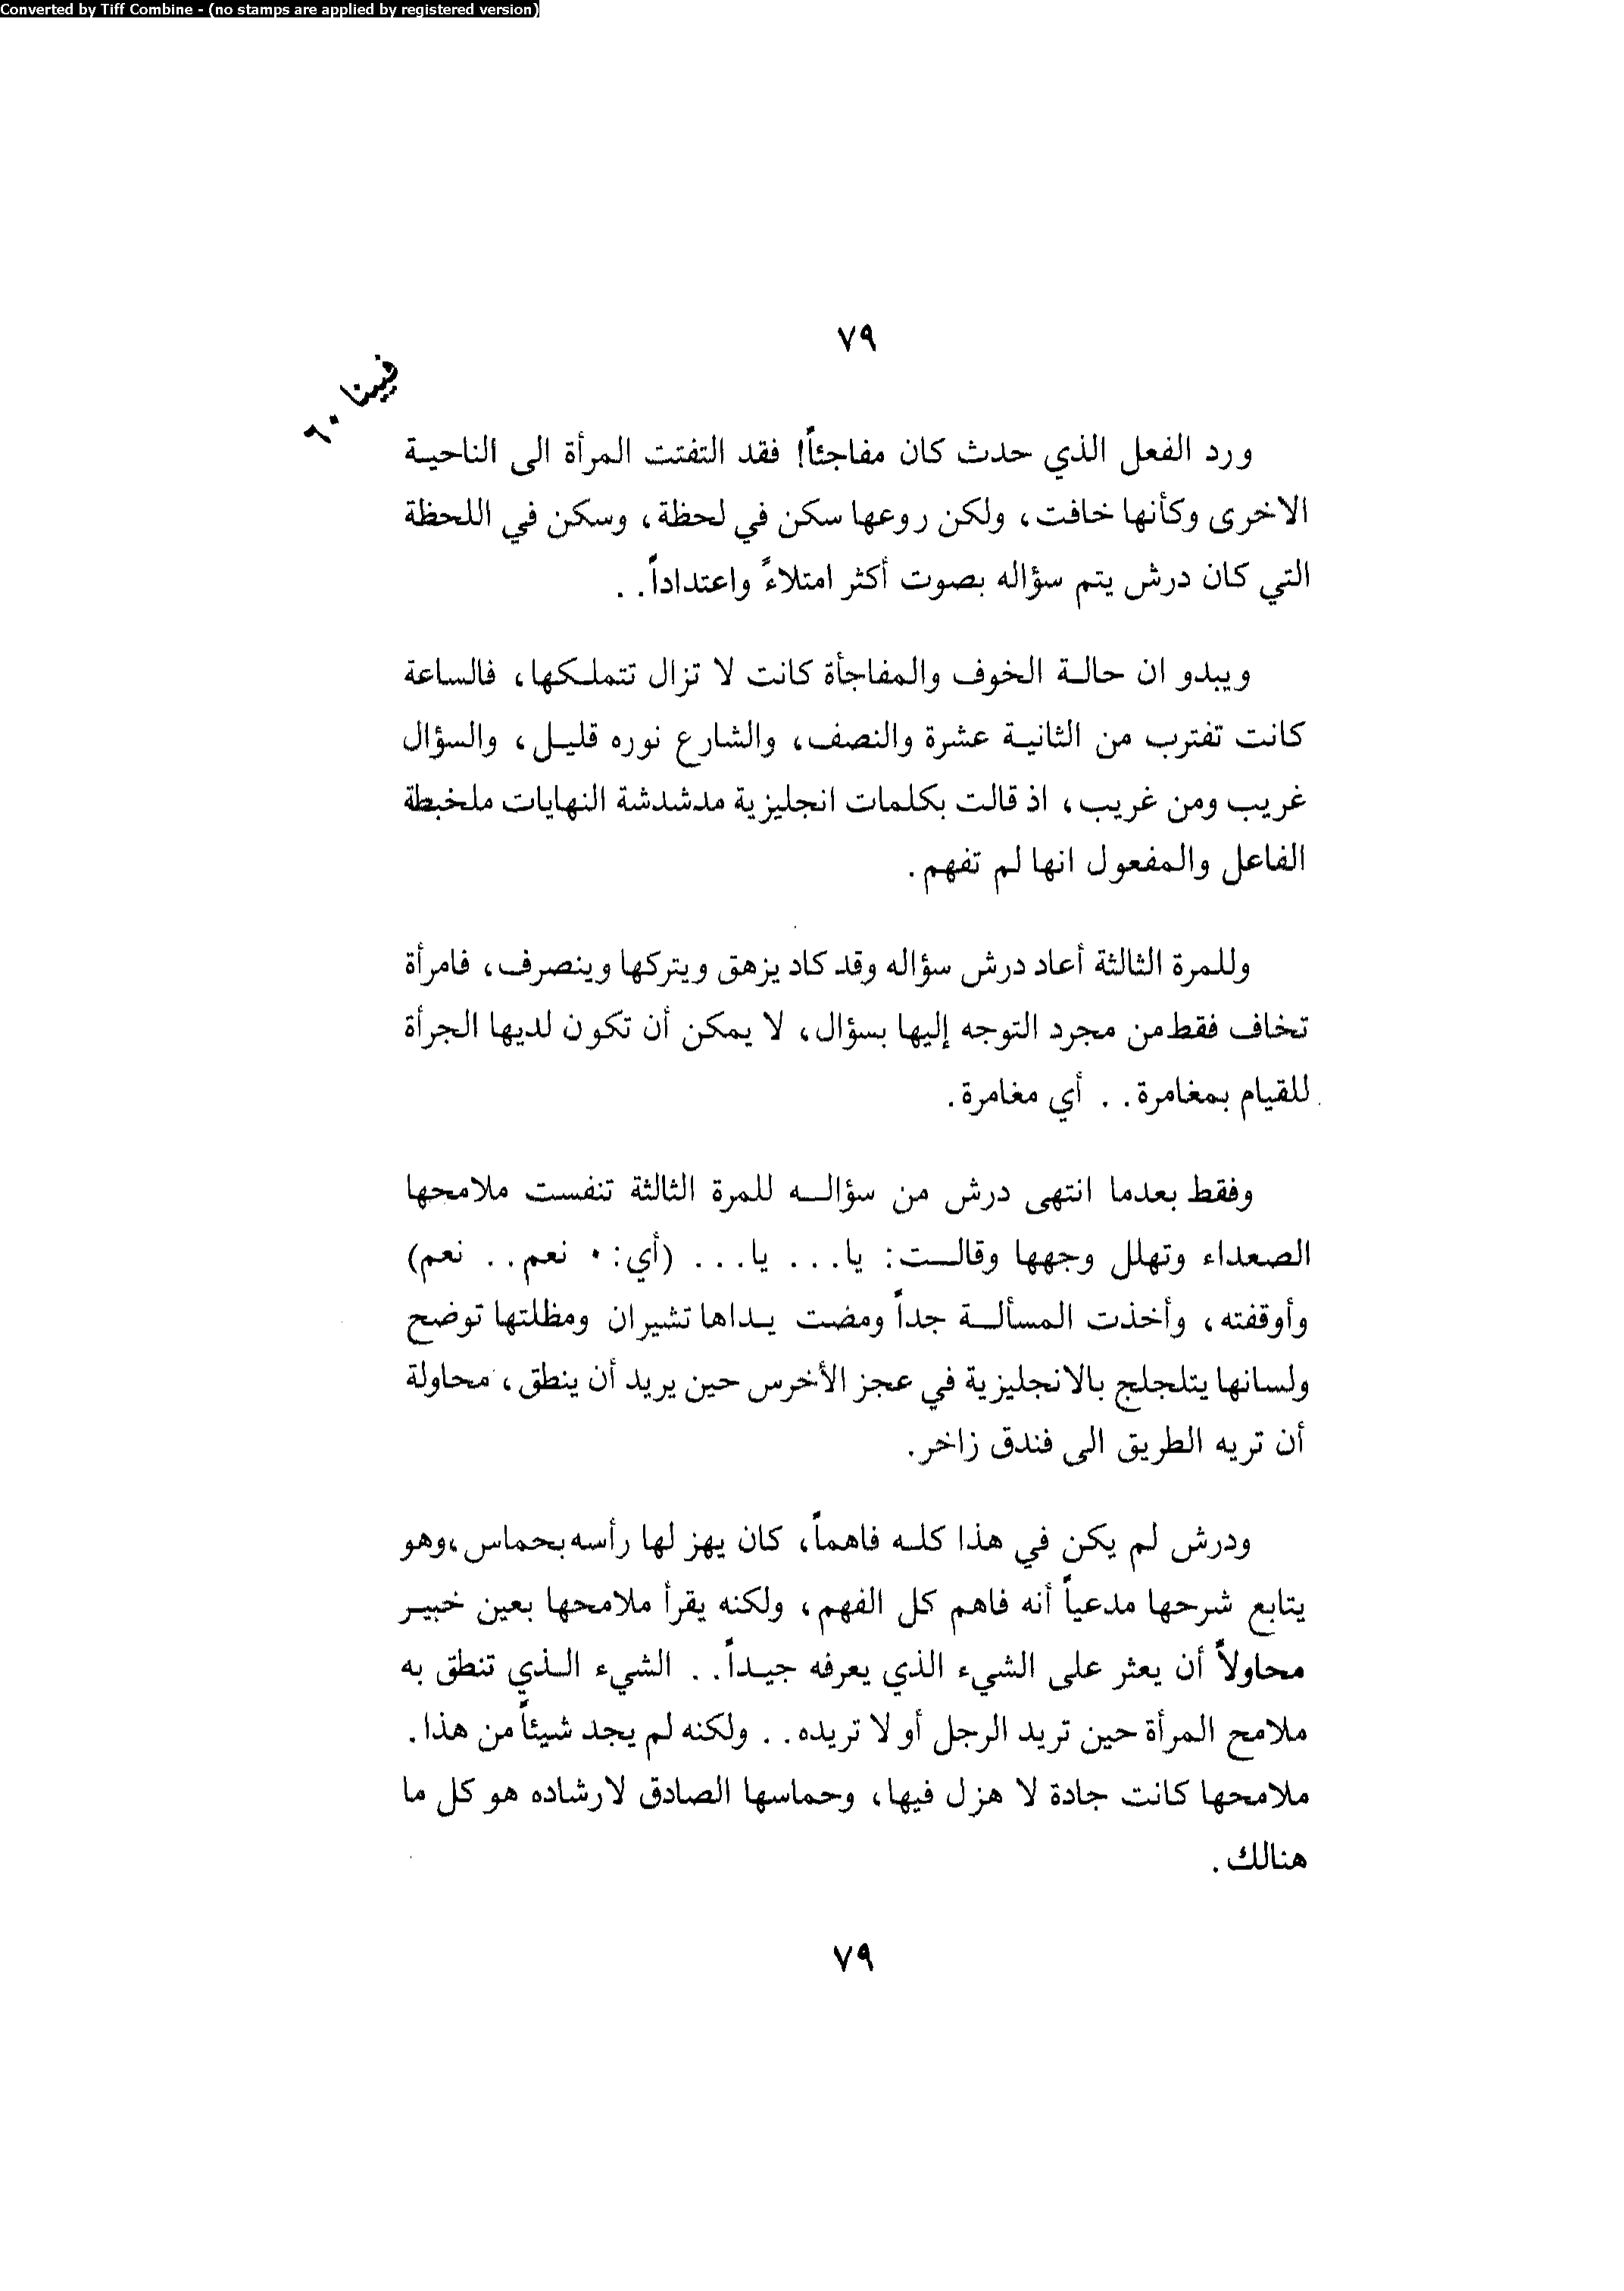 Converted by Tiff Combine - (no stamps are applied by registered version)
٧٩
فيينا ٦٠
ورد الفعل الذي حدث كان مفاجئاً! فقد التفتت المرأة الى الناحية
الاخرى وكأنها خافت، ولكن روعها سكن في لحظة، وسكن في اللحظة
التي كان درش يتم سؤاله بصوت أكثر امتلاءً واعتداداً. .
ويبدو ان حالة الخوف والمفاجأة كانت لا تزال تتملكها، فالساعة
كانت تقترب من الثانية عشرة والنصف، والشارع نوره قليل، والسؤال
غريب ومن غريب، اذ قالت بكلمات انجليزية مدشدشة النهايات ملخبطة
الفاعل والمفعول انها لم تفهم.
وللمرة الثالثة أعاد درش سؤاله وقد كاد يزهق ويتركها وينصرف، فامرأة
تخاف فقط من مجرد التوجه إليها بسؤال، لا يمكن أن تكون لديها الجرأة
للقيام بمغامرة. . أي مغامرة.
وفقط بعدما انتهى درش من سؤاله للمرة الثالثة تنفست ملامحها
الصعداء وتهلل وجهها وقالت: يا. . . يا. . . (أي: نعم. . نعم)
وأوقفته، وأخذت المسألة جداً ومضت يداها تشيران ومظلتها توضح
ولسانها يتلجلج بالانجليزية في عجز الأخرس حين يريد أن ينطق، محاولة
أن تريه الطريق الى فندق زاخر.
ودرش لم يكن في هذا كله فاهماً، كان يهز لها رأسه بحماس، وهو
يتابع شرحها مدعياً أنه فاهم كل الفهم، ولكنه يقرأ ملامحها بعين خبير
محاولاً أن يعثر على الشيء الذي يعرفه جيداً. . الشيء الذي تنطق به
ملامح المرأة حين تريد الرجل أو لا تريده. . ولكنه لم يجد شيئاً من هذا.
ملامحها كانت جادة لا هزل فيها، وحماسها الصادق لارشاده هو كل ما
هنالك.
٧٩